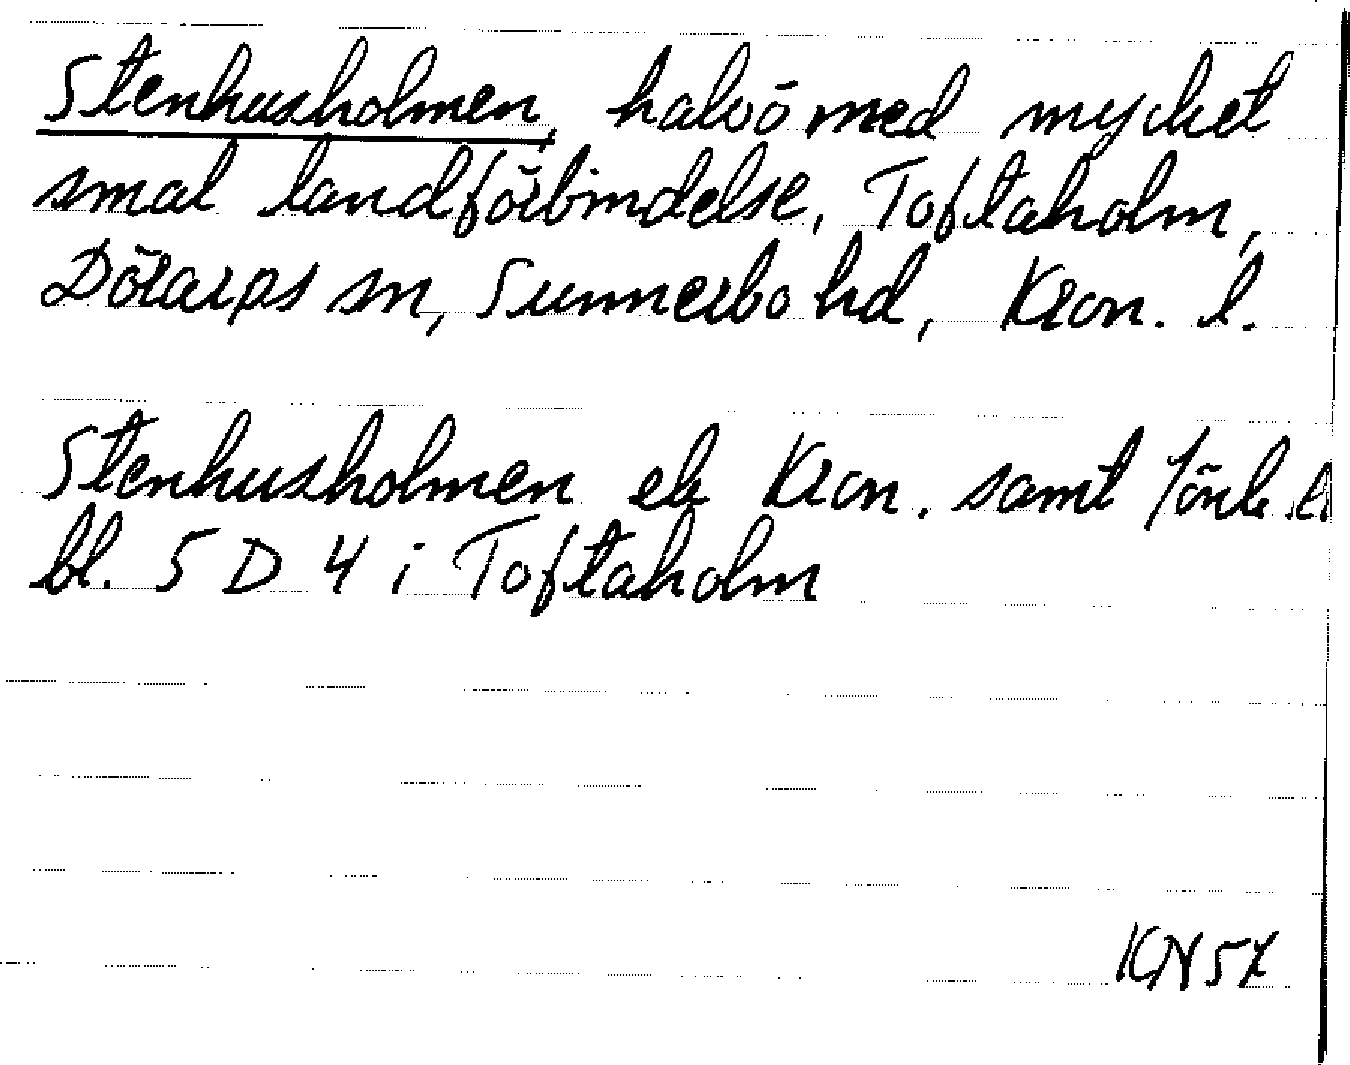 Stenhusholmen, halvö med mycket
smal landförbindelse, Toftaholm,
Dörarps sn, Sunnerbo hd, Kron. l.
Stenhusholmen ek Kron. samt Jönk. l
bl. 5 D 4 i Toftaholm
KGN 57